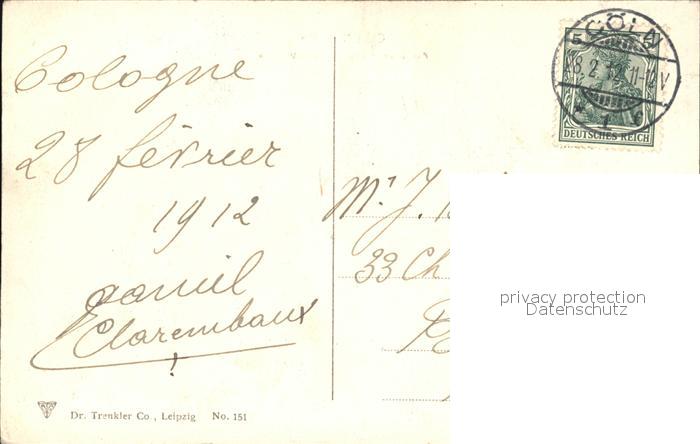 Cologne
28 février
1912
Clarembaux
Dr. Trenkler Co., Leipzig No. 151
CÖLN
5
28.2.12.11-12V
* 1 c
DEUTSCHES REICH
Mr. J.
33 Ch
privacy protection
Datenschutz